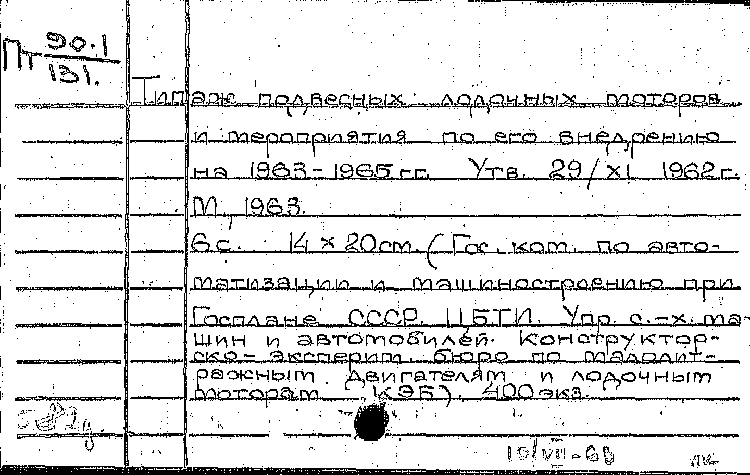 Пт 90.1
131.
Типаж подвесных лодочных моторов
и мероприятия по его внедрению
на 1963-1965 гг. Утв. 29/XI 1962 г.
М., 1963.
6 с. 14 × 20 см. (Гос. ком. по авто-
матизации и машиностроению при
Госплане СССР. ЦБТИ. Упр. с.-х. ма-
шин и автомобилей. Конструктор-
ско-эксперим. бюро по малолит-
ражным двигателям и лодочным
моторам КЭБ). 400 экз.